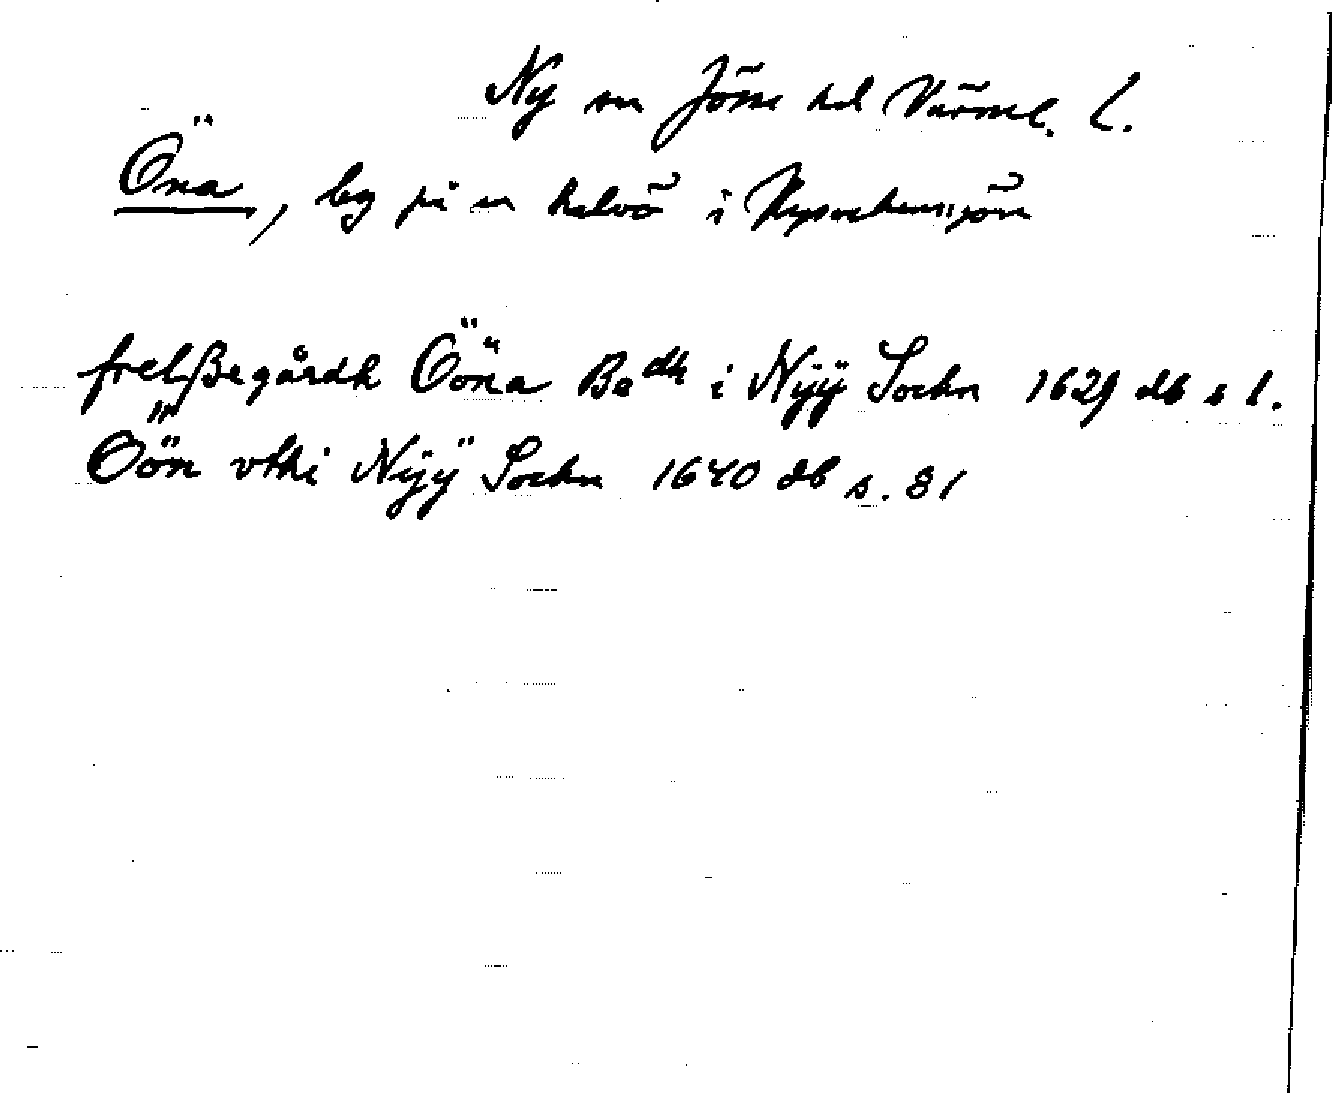 Ny sn Jösse hd Värml. l.
Öna, beg på en halvö i Nysockensjön
frelßegårdh Ööna Be dh i Nijÿ Sockn 1629 db s 1.
Öön vthi Nijÿ Sockn 1640 db s. 81